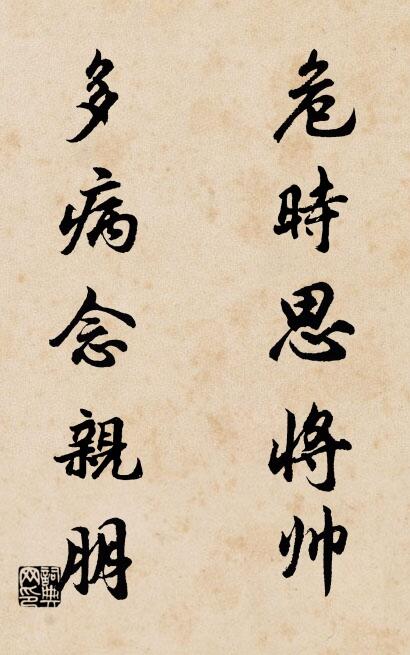 危時思将帅
多病念親朋
詞典网印